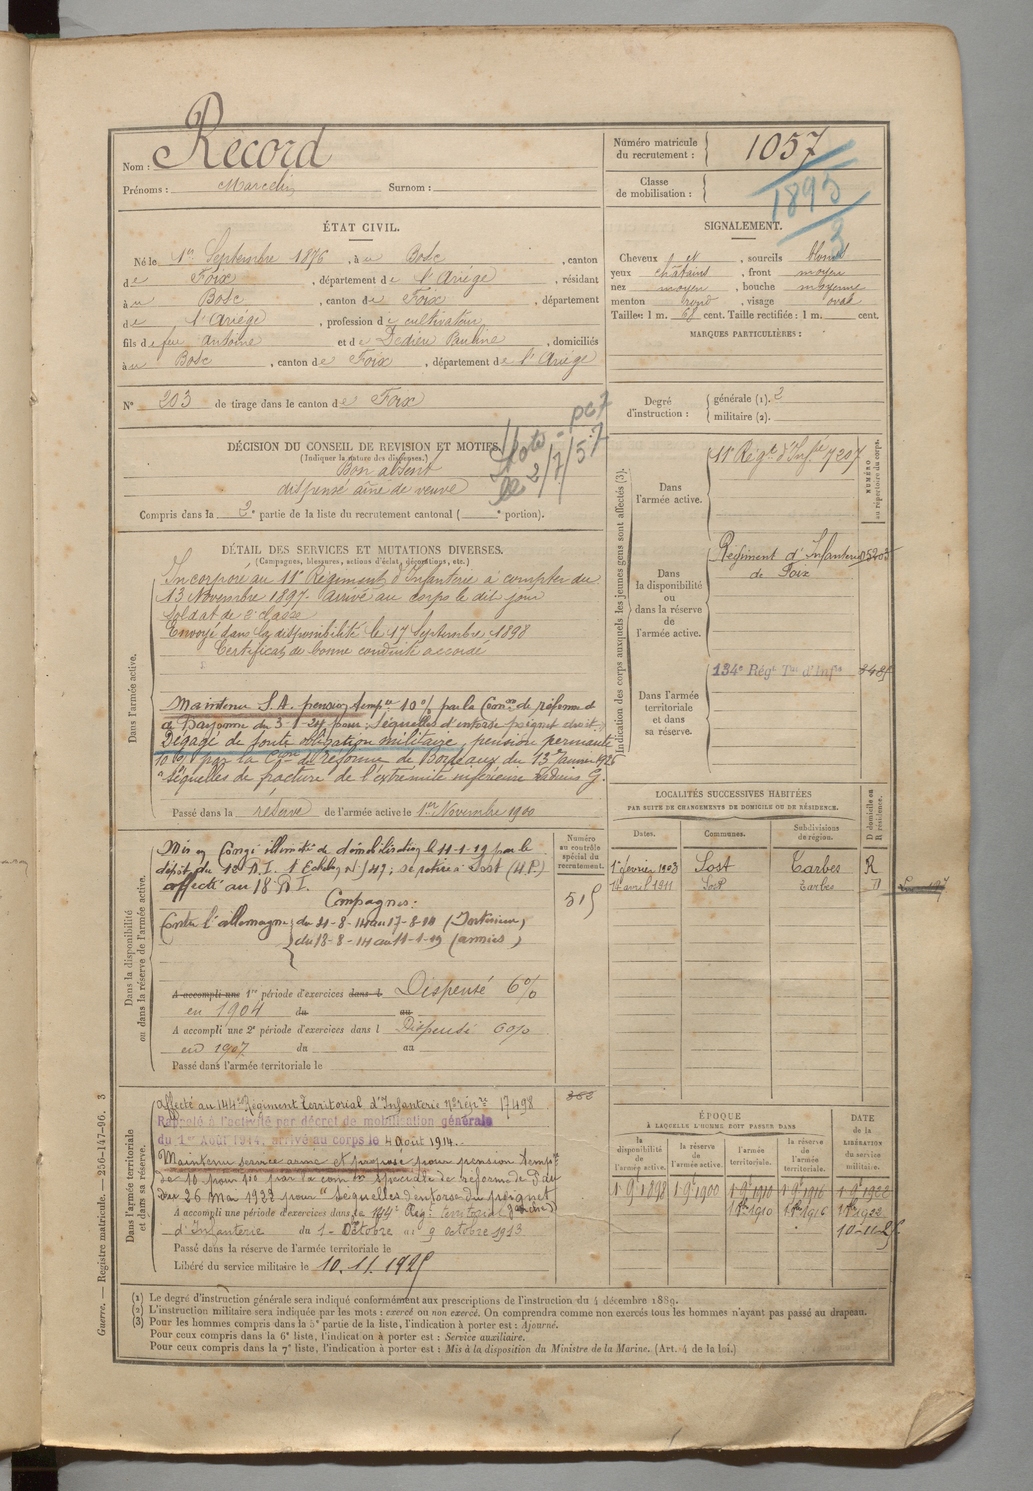 Nom : Record
Prénoms : Marcelin Surnom :
Numéro matricule du recrutement : 1057
Classe de mobilisation :
1895
3
ÉTAT CIVIL.
Né le 1er Septembre 1876, à u Bosc, canton
de Foix, département de l'Ariège, résidant
à u Bosc, canton de Foix, département
de l'Ariège, profession de cultivateur
fils de feu Antoine et de Dedieu Pauline, domiciliés
à u Bosc, canton de Foix, département de l'Ariège
SIGNALEMENT.
Cheveux et, sourcils blond
yeux châtains, front moyen
nez moyen, bouche moyenne
menton rond, visage oval
Taille : 1 m. 68 cent. Taille rectifiée : 1 m. cent.
MARQUES PARTICULIÈRES :
N° 203 de tirage dans le canton de Foix
Degré d'instruction : générale (1). 3
militaire (2).
DÉCISION DU CONSEIL DE REVISION ET MOTIFS.
(Indiquer la nature des dispenses.)
Bon absent
dispensé aîné de veuve
Compris dans la 2e partie de la liste du recrutement cantonal ( e portion).
2/7/57
DÉTAIL DES SERVICES ET MUTATIONS DIVERSES.
(Campagnes, blessures, actions d'éclat, décorations, etc.)
Dans l'armée active.
Incorporé au 11e Régiment d'Infanterie à compter du
13 Novembre 1897. arrivé au corps le dit jour
Soldat de 2e classe
Envoyé dans la disponibilité le 17 Septembre 1898
Certificat de bonne conduite accordé
Maintenu S.A. pension temp re 10% par la Con on de réforme de
à Bayonne du 3-1-24 pour : Séquelles d'entorse poignet droit.
Dégagé de toute obligation militaire, pension permante
10% par la Con de réforme de Bordeaux du 13 Janvier 1925
"Séquelles de fracture de l'extremité inférieure radius G.
Passé dans la réserve de l'armée active le 1er Novembre 1900
Indication des corps auxquels les jeunes gens sont affectés (3).
NUMÉRO au répertoire du corps.
Dans l'armée active.
11e Régt d'Infie 7207
Dans la disponibilité ou dans la réserve de l'armée active.
Régiment d'Infanterie
de Foix
Dans l'armée territoriale et dans sa réserve.
134e Régt Tal d'Infie
LOCALITÉS SUCCESSIVES HABITÉES
PAR SUITE DE CHANGEMENTS DE DOMICILE OU DE RÉSIDENCE.
Dates. Communes. Subdivisions de région. D domicile ou R résidence.
1er février 1903 Sost Tarbes R
12 avril 1911 Sost Tarbes
Numéro au contrôle spécial du recrutement.
515
Dans la disponibilité ou dans la réserve de l'armée active.
Mis en Congé illimité de démobilisation le 11-1-19 par le
dépôt du 18 R.I. 1 Echelon n° 147; se retire à Sost (H.P.)
affecté au 18 R.I.
Campagnes:
Contre l'allemagne du 21-8-14 au 17-8-14 (Intérieur)
du 18-8-14 au 11-1-19 (armées)
A accompli une 1re période d'exercices dans l Dispensé 6%
en 1904 du au
A accompli une 2e période d'exercices dans l Dispensé 6%
en 1907 du au
Passé dans l'armée territoriale le
Dans l'armée territoriale et dans sa réserve.
affecté au 144e Régiment Territorial d'Infanterie n° rép re 17498
Rappelé à l'activité par décret de mobilisation générale
du 1er Août 1914, arrivé au corps le 4 août 1914.
Maintenu service armé et proposé pour pension temp re
de 10 pour 100 par la com on spéciale de réforme de Pau
du 26 Mai 1922 pour "séquelles d'entorse du poignet
A accompli une période d'exercices dans le 144e Régt territorial
d'Infanterie du 1er Octobre au 9 octobre 1913
Passé dans la réserve de l'armée territoriale le
Libéré du service militaire le 10.11.1925
ÉPOQUE
À LAQUELLE L'HOMME DOIT PASSER DANS
la disponibilité de l'armée active. la réserve de l'armée active. l'armée territoriale. la réserve de l'armée territoriale. DATE de la LIBÉRATION du service militaire.
1 9e 1898 1 9e 1900 1 9e 1910 1 9e 1916 1 9e 1922
1910 1916 1922
10-11-25
(1) Le degré d'instruction générale sera indiqué conformément aux prescriptions de l'instruction du 4 décembre 1889.
(2) L'instruction militaire sera indiquée par les mots : exercé ou non exercé. On comprendra comme non exercés tous les hommes n'ayant pas passé au drapeau.
(3) Pour les hommes compris dans la 5e partie de la liste, l'indication à porter est : Ajourné.
Pour ceux compris dans la 6e liste, l'indication à porter est : Service auxiliaire.
Pour ceux compris dans la 7e liste, l'indication à porter est : Mis à la disposition du Ministre de la Marine. (Art. 4 de la loi.)
Guerre. — Registre matricule. — 256-147-96. 3